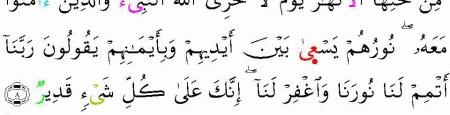 مِن تَحْتِهَا ٱلْأَنْهَٰرُ يَوْمَ لَا يُخْزِى ٱللَّهُ ٱلنَّبِىَّ وَٱلَّذِينَ ءَامَنُوا۟
مَعَهُۥ ۖ نُورُهُمْ يَسْعَىٰ بَيْنَ أَيْدِيهِمْ وَبِأَيْمَٰنِهِمْ يَقُولُونَ رَبَّنَآ
أَتْمِمْ لَنَا نُورَنَا وَٱغْفِرْ لَنَآ ۖ إِنَّكَ عَلَىٰ كُلِّ شَىْءٍ قَدِيرٌ ٨